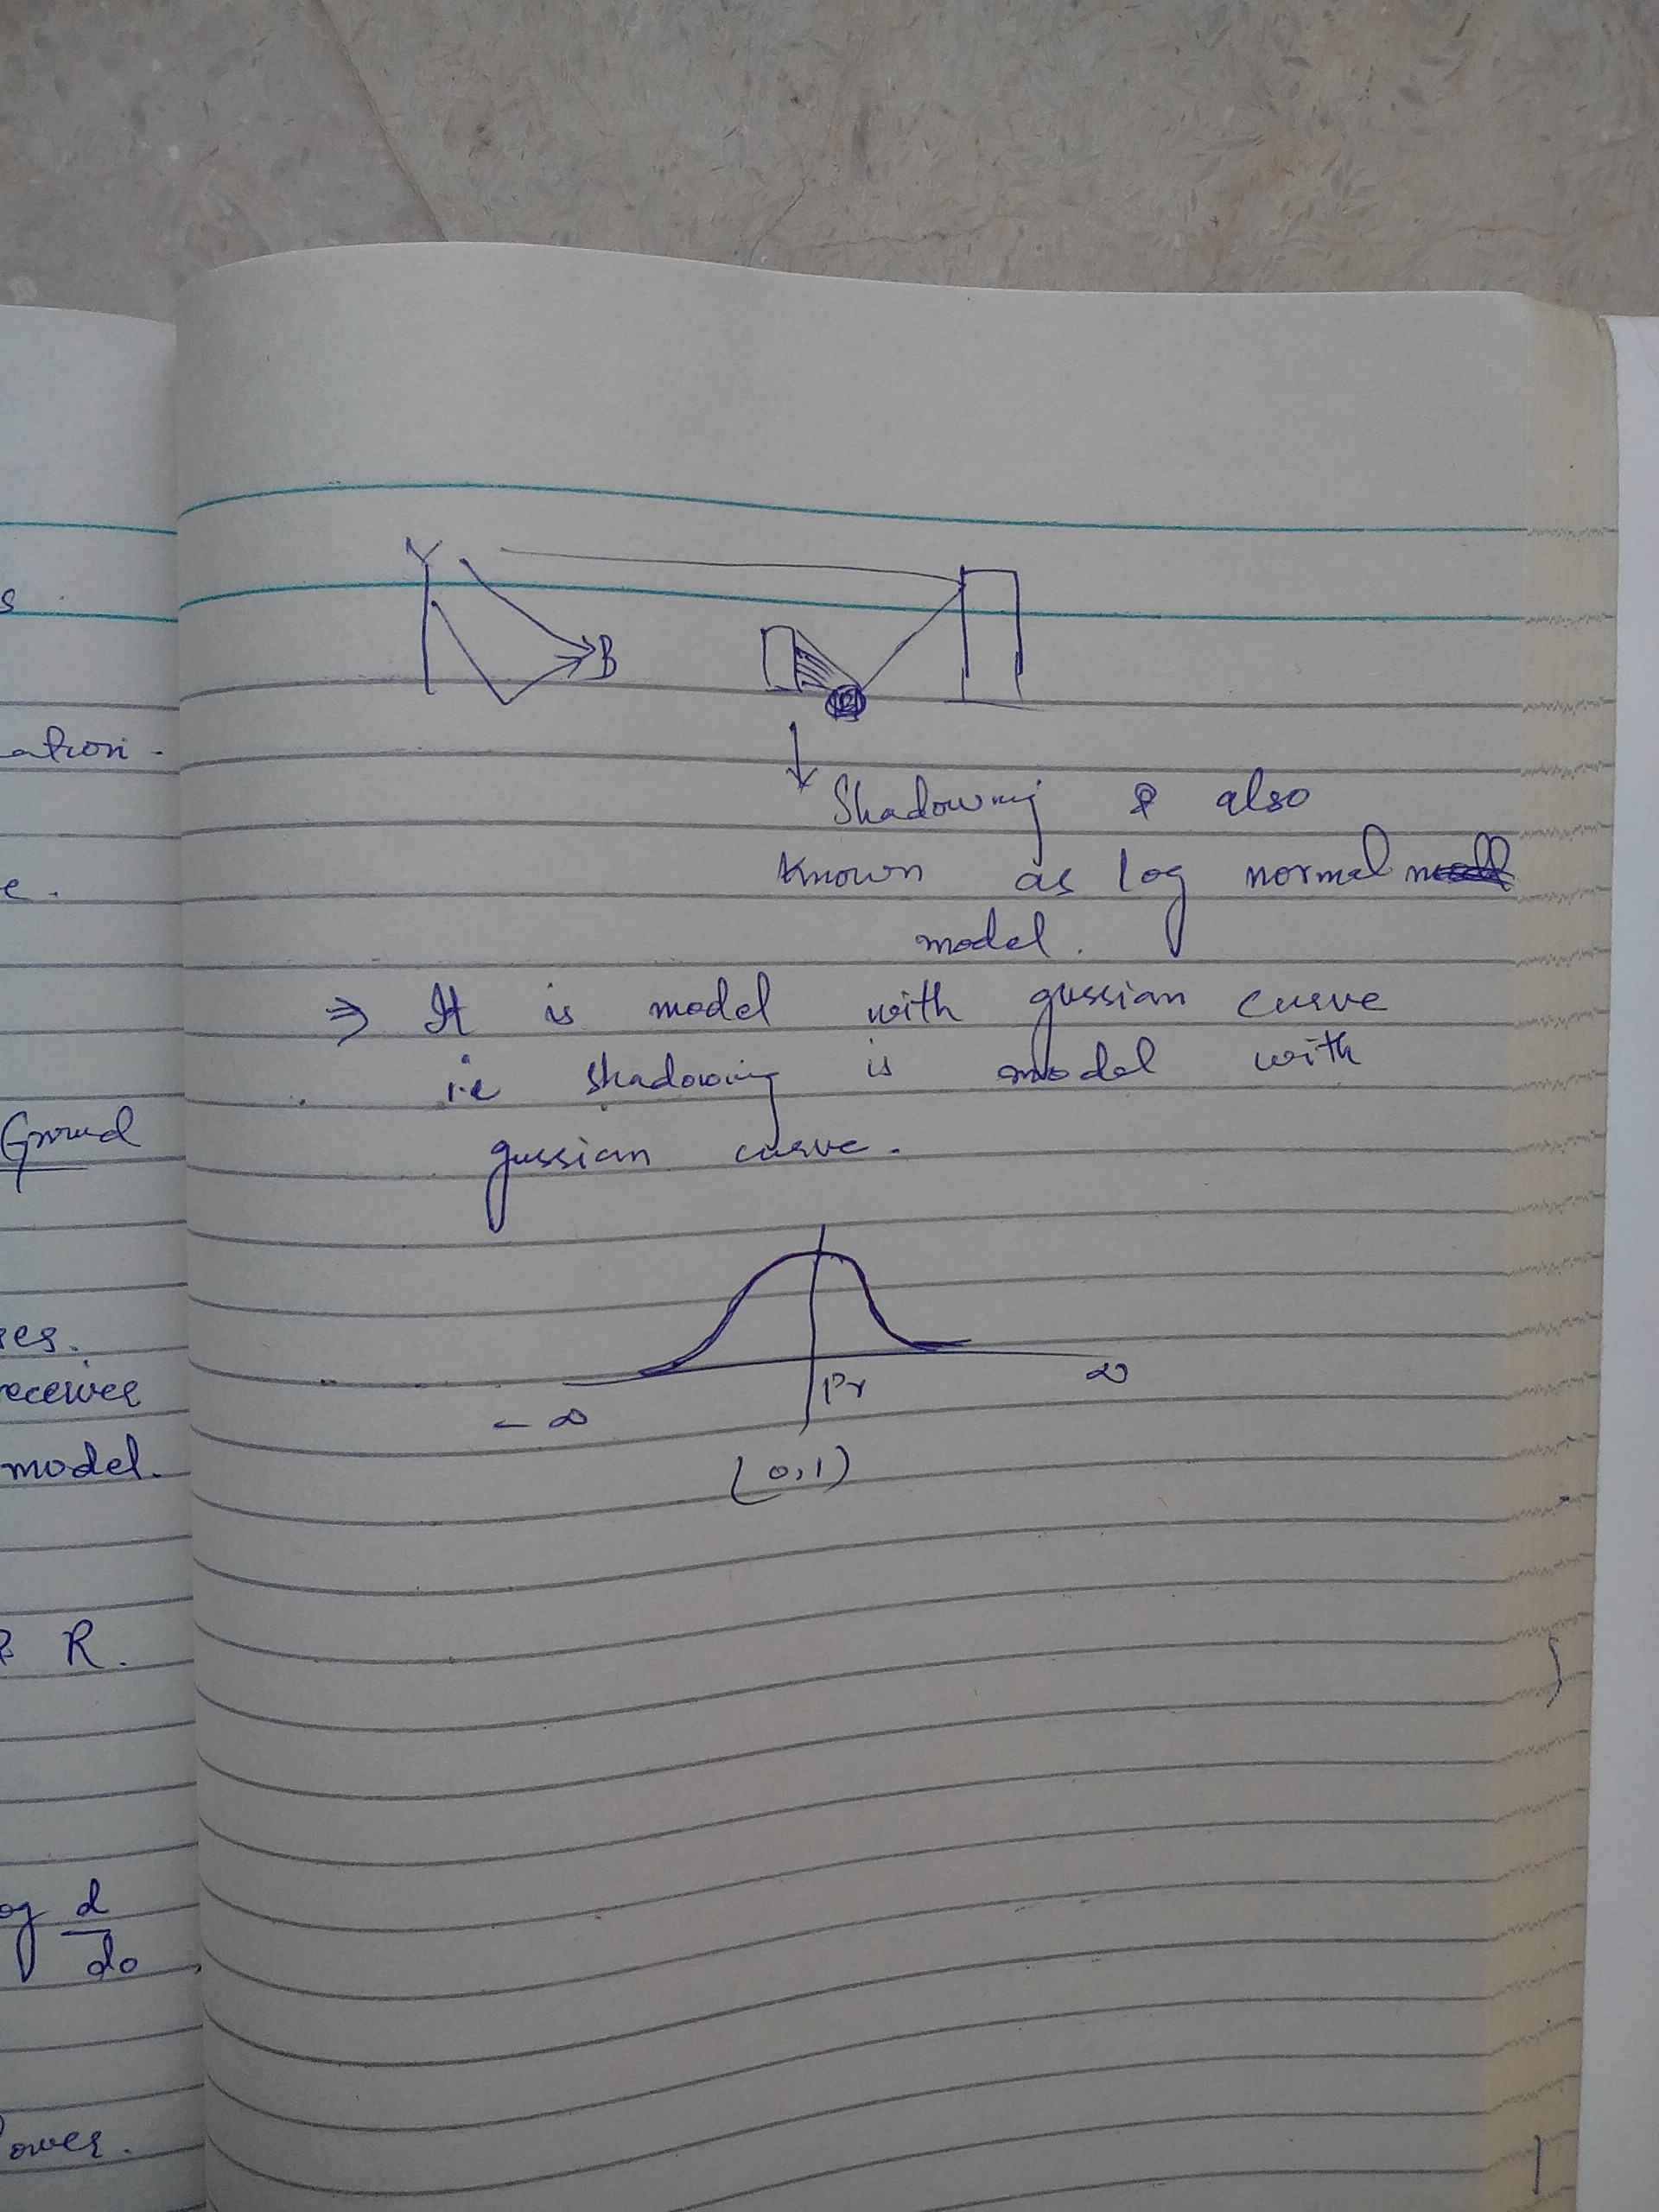 s
ation-
e.
Ground
res.
receiver
model.
R.
og d/do
Power.
B
Shadowing & also
known as log normal
model.
⇒ It is model with gussian curve
i.e shadowing is model with
gussian curve.
Pr
-∞ ∞
(0,1)